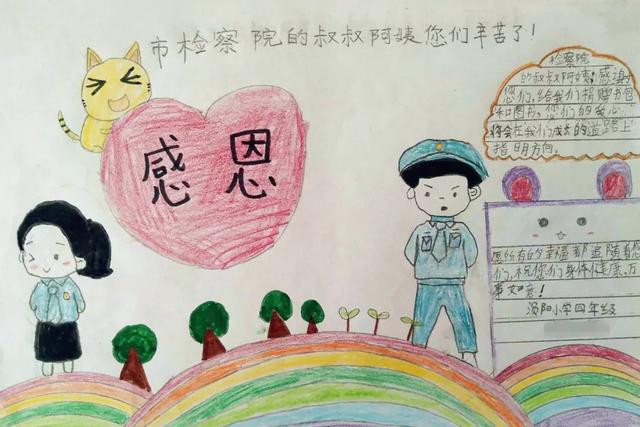 市检察院的叔叔阿姨您们辛苦了!
感恩
检察院
的叔叔阿姨:感谢
您们,给我们捐赠书包
和图书,您们的爱心
将会在我们成长的道路上
指明方向。
愿所有的幸福都追随着您
们,祝您们身体健康,万
事如意!
涡阳小学四年级